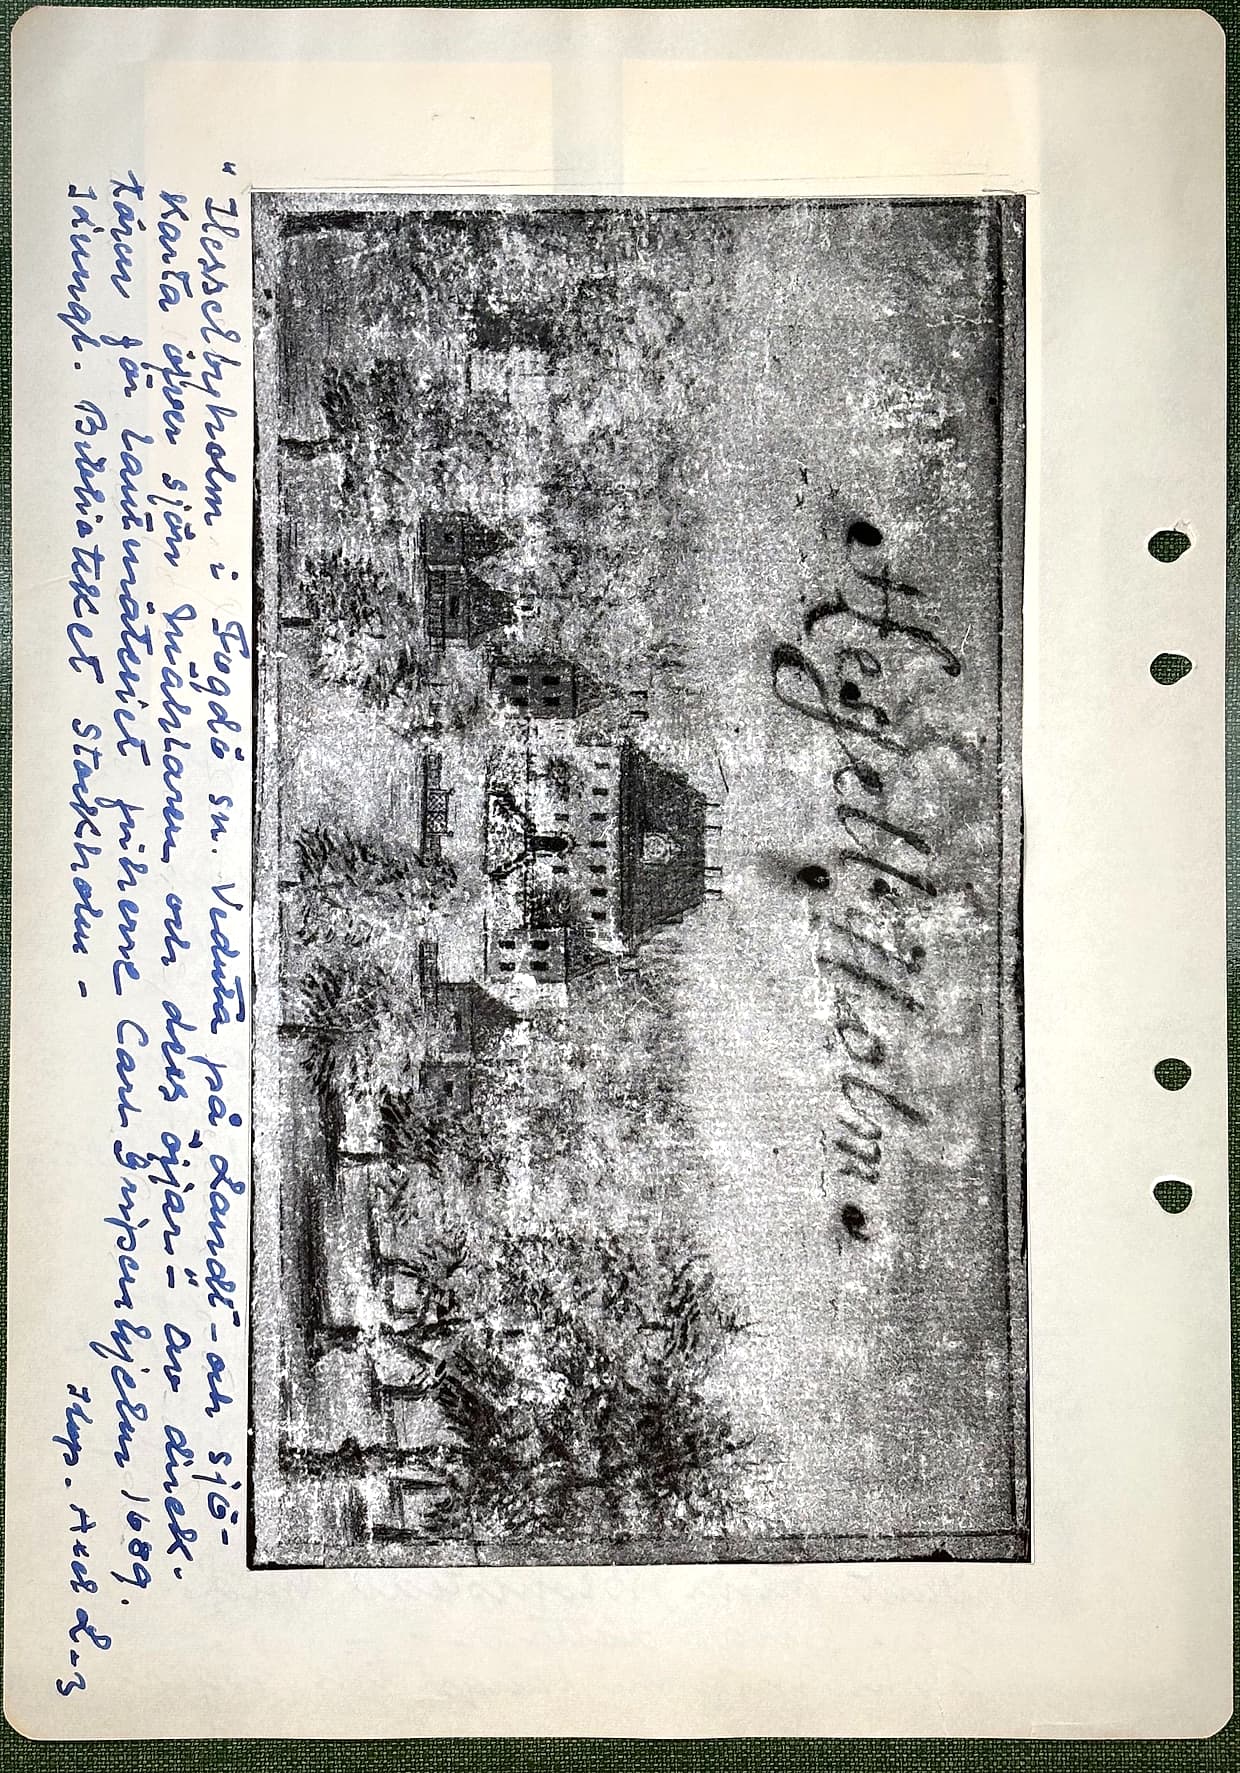 • Heſſelbÿ Holm •
"Hesselbyholm i Fogdö sn. Veduta på "Landt- och sjö-
karta öfver sjön Mählaren och dess öijar" - av direk-
tören för Lantmäteriet friherre Carl Gripenhjelm 1689.
Kungl. Biblioteket Stockholm -
Rep. Axel L-3